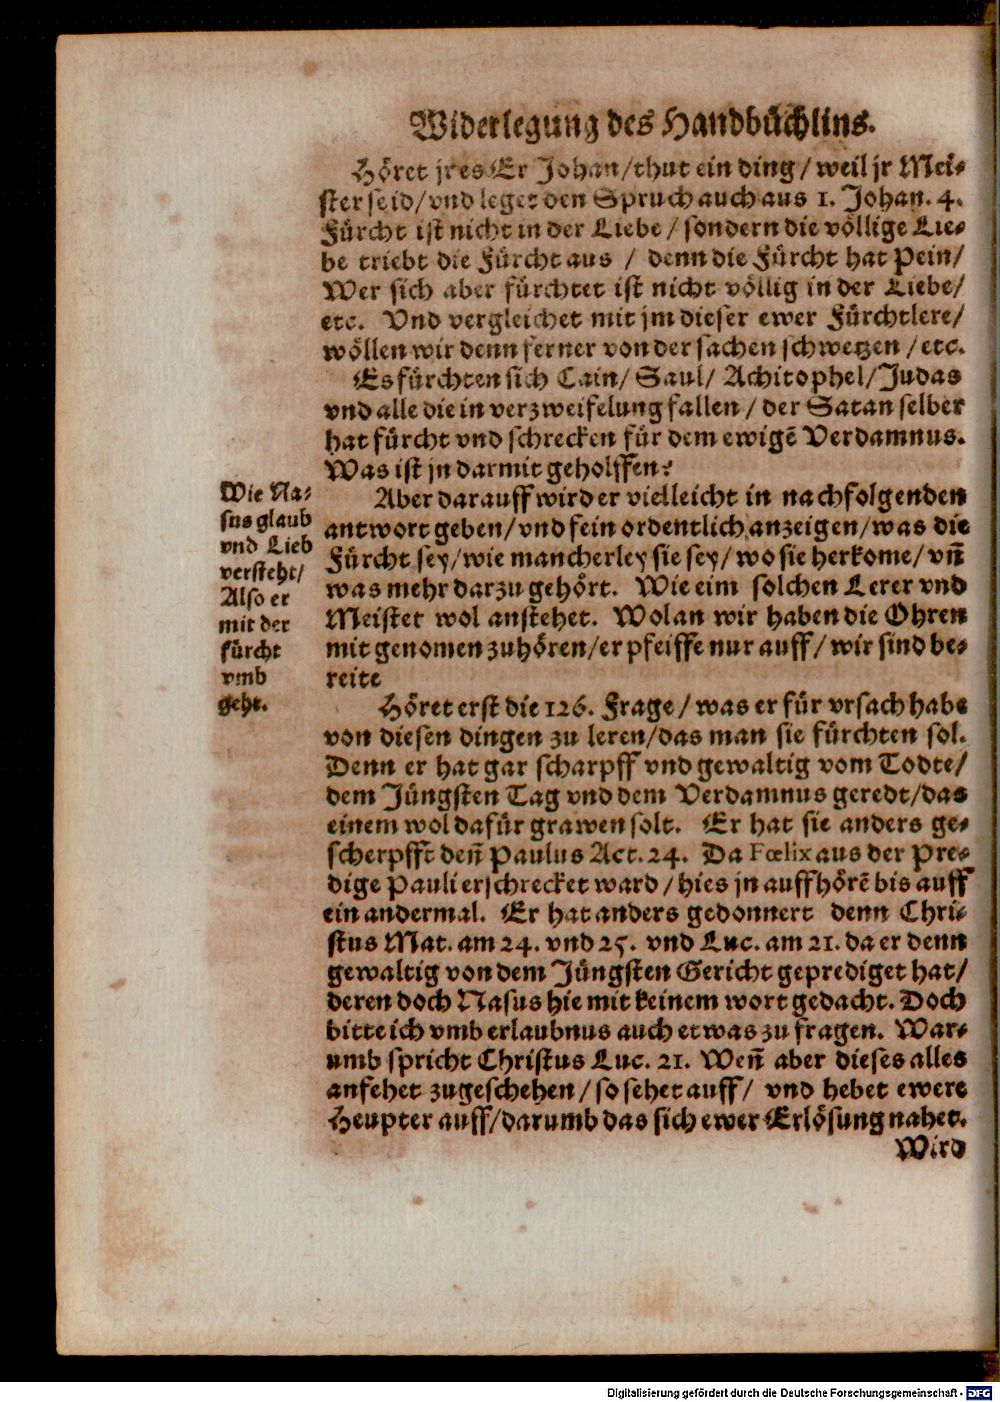 Widerlegung des Handbüchlins.
Höret jr es Er Johan/thut ein ding/weil jr Mei-
ster seid/vnd leget den Spruch auch aus 1. Johan. 4.
Fürcht ist nicht in der Liebe/sondern die völlige Lie-
be triebt die Fürcht aus / denn die Fürcht hat Pein/
Wer sich aber fürchtet ist nicht völlig in der Liebe/
etc. Vnd vergleichet mit jm dieser ewer Fürchtlere/
wöllen wir denn ferner von der sachen schwetzen /etc.
Es fürchten sich Cain/ Saul/ Achitophel/Judas
vnd alle die in verzweifelung fallen / der Satan selber
hat fürcht vnd schrecken für dem ewigē Verdamnus.
Was ist jn darmit geholffen?
Wie Na-
sus glaub
vnd Lieb
versteht/
Also er
mit der
fürcht
vmb
geht.
Aber darauff wird er vielleicht in nachfolgenden
antwort geben/vnd fein ordentlich anzeigen/was die
Fürcht sey/wie mancherley sie sey/wo sie herkome/vñ
was mehr darzu gehört. Wie eim solchen Lerer vnd
Meistet wol anstehet. Wolan wir haben die Ohren
mit genomen zuhören/er pfeiffe nur auff/wir sind be-
reite
Höret erst die 126. Frage/was er für vrsach habe
von diesen dingen zu leren/das man sie fürchten sol.
Denn er hat gar scharpff vnd gewaltig vom Todte/
dem Jüngsten Tag vnd dem Verdamnus geredt/das
einem wol dafür grawen solt. Er hat sie anders ge-
scherpfft deñ Paulus Act. 24. Da Fœlix aus der Pre-
dige Pauli erschrecket ward/hies jn auffhörē bis auff
ein andermal. Er hat anders gedonnert denn Chri-
stus Mat. am 24. vnd 25. vnd Luc. am 21. da er denn
gewaltig von dem Jüngsten Gericht geprediget hat/
deren doch Nasus hie mit keinem wort gedacht. Doch
bitte ich vmb erlaubnus auch etwas zu fragen. War-
umb spricht Christus Luc. 21. Weñ aber dieses alles
anfehet zugeschehen/so sehet auff/ vnd hebet ewere
Heupter auff/darumb das sich ewer Erlösung nahet.
Wird
Digitalisierung gefördert durch die Deutsche Forschungsgemeinschaft - DFG